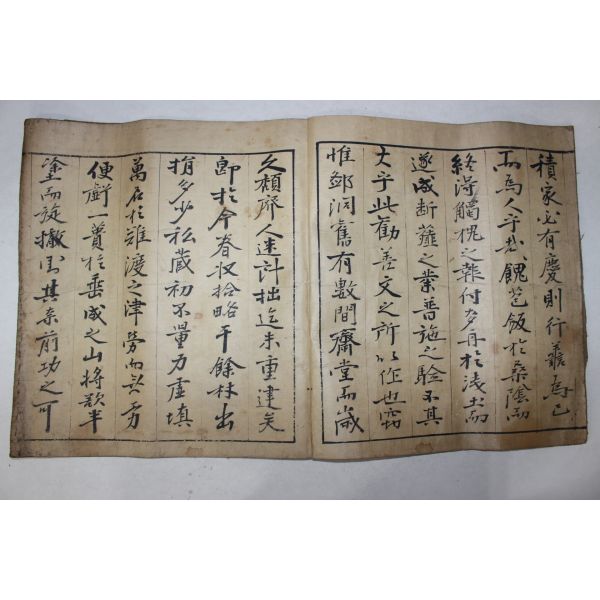 積家必有慶則行善爲已
而爲人乎哉餽簞飯於桑陰而
終得觸槐之報付麥舟於淺土而
遂成斷虀之業普施之驗不其
大乎此勸善文之所以作也窃
惟鄒洞舊有數間齋堂而歲
久頹廢人速計拙迄未重建矣
卽於今春収拾略干餘材出
捐多少私藏初不量力虛填
萬石於難渡之津勞而無方
便虧一簣於垂成之山將歎半
途而旋撤對其奈前功之可